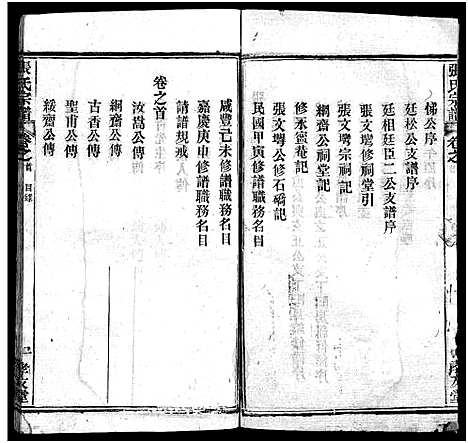 張氏宗譜
卷之
悌公序
廷松公支譜序
廷相廷臣二公支譜序
張文墀修祠堂引
張文墀宗祠記
綱齋公祠堂記
修永蜜菴記
張文墀公修石磡記
民國甲寅修譜職務名目
咸豐己未修譜職務名目
嘉慶庚申修譜職務名目
請譜規戒
卷之首
汝嵩公傳
綱齋公傳
古香公傳
聖甫公傳
綏齋公傳
張氏宗譜
卷之首 目錄
孝友堂